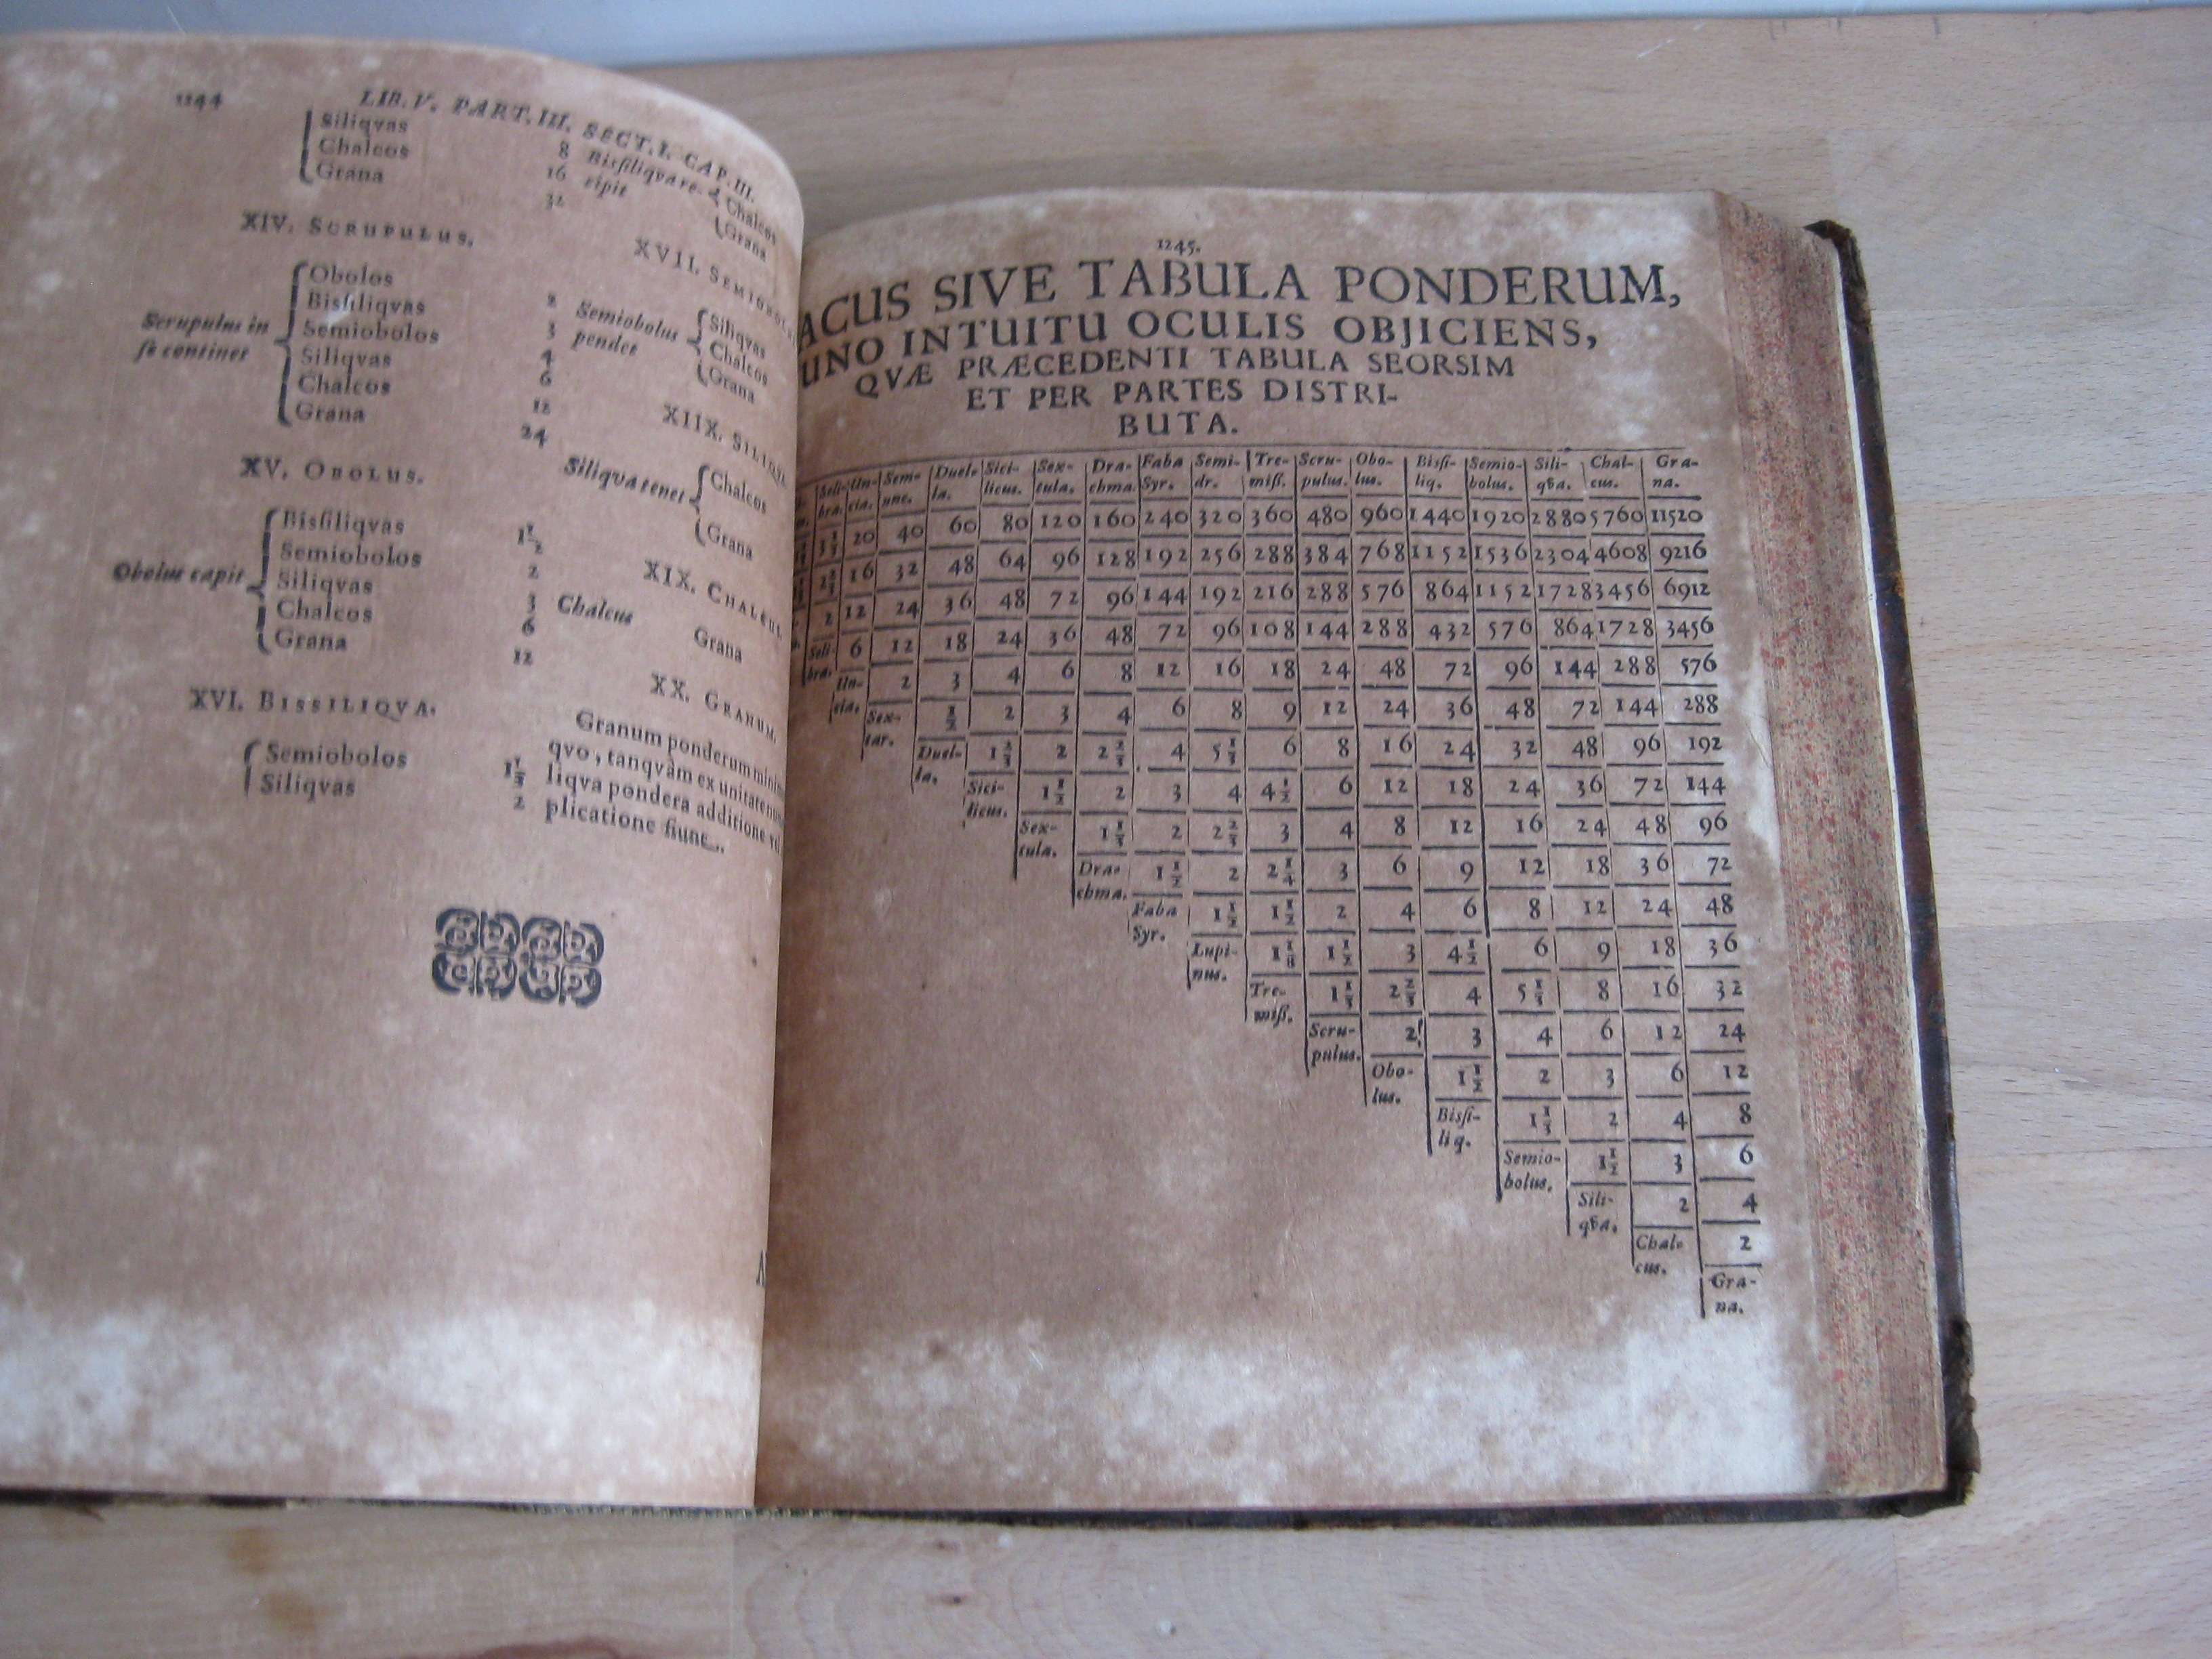 1244
LIB. V. PART. III. SECT. I. CAP. III.
Siliqvas 8
Chalcos 16
Grana 32
XIV. SCRUPULUS.
Scrupulus in
se continet
Obolos 2
Bisſiliqvas 3
Semiobolos 4
Siliqvas 6
Chalcos 12
Grana 24
XV. OBOLUS.
Obolus capit
Bisſiliqvas 1 1/2
Semiobolos 2
Siliqvas 3
Chalcos 6
Grana 12
XVI. BISSILIQVA.
Semiobolos 1 1/3
Siliqvas 2
Bisſiliqva re-
cipit
Chalcos
Grana
XVII.
Semiobolus
pendet
Siliqvas
Chalcos
Grana
XIIX. SILIQVA
Siliqva tenet
Chalcos
Grana
XIX. CHALCUS
Chalcus Grana
XX. GRANUM.
Granum ponderum
qvo, tanqvàm ex unitate
liqva pondera additione
plicatione fiunt.
1245.
ACUS SIVE TABULA PONDERUM,
UNO INTUITU OCULIS OBJICIENS,
QVÆ PRÆCEDENTI TABULA SEORSIM
ET PER PARTES DISTRI-
BUTA.
Seli-bra. Un-cia. Sem-unc. Duel-la. Sici-licus. Sex-tula. Dra-chma. Faba Syr. Semi-dr. Tre-miſſ. Scru-pulus. Obo-lus. Bisſi-liq. Semio-bolus. Sili-qva. Chal-cus. Gra-na.
3 1/3 20 40 60 80 120 160 240 320 360 480 960 1440 1920 2880 5760 11520
2 2/3 16 32 48 64 96 128 192 256 288 384 768 1152 1536 2304 4608 9216
2 12 24 36 48 72 96 144 192 216 288 576 864 1152 1728 3456 6912
Seli-bra. 6 12 18 24 36 48 72 96 108 144 288 432 576 864 1728 3456
Un-cia. 2 3 4 6 8 12 16 18 24 48 72 96 144 288 576
Sex-tar. 1/2 2 3 4 6 8 9 12 24 36 48 72 144 288
Duel-la. 1 1/3 2 2 2/3 4 5 1/3 6 8 16 24 32 48 96 192
Sici-licus. 1 1/2 2 3 4 4 1/2 6 12 18 24 36 72 144
Sex-tula. 1 1/3 2 2 2/3 3 4 8 12 16 24 48 96
Dra-chma. 1 1/2 2 2 1/4 3 6 9 12 18 36 72
Faba Syr. 1 1/2 1 1/2 2 4 6 8 12 24 48
Lupi-nus. 1 1/8 1 1/2 3 4 1/2 6 9 18 36
Tre-miſſ. 1 1/3 2 2/3 4 5 1/3 8 16 32
Scru-pulus. 2 3 4 6 12 24
Obo-lus. 1 1/2 2 3 6 12
Bisſi-liq. 1 1/3 2 4 8
Semio-bolus. 1 1/2 3 6
Sili-qva. 2 4
Chal-cus. 2
Gra-na.